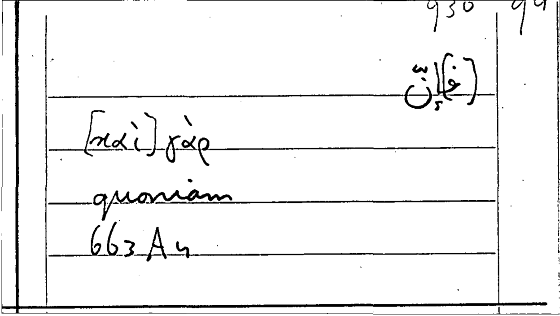 930
[ف]إنّ
[καὶ] γὰρ
quoniam
663 A 4